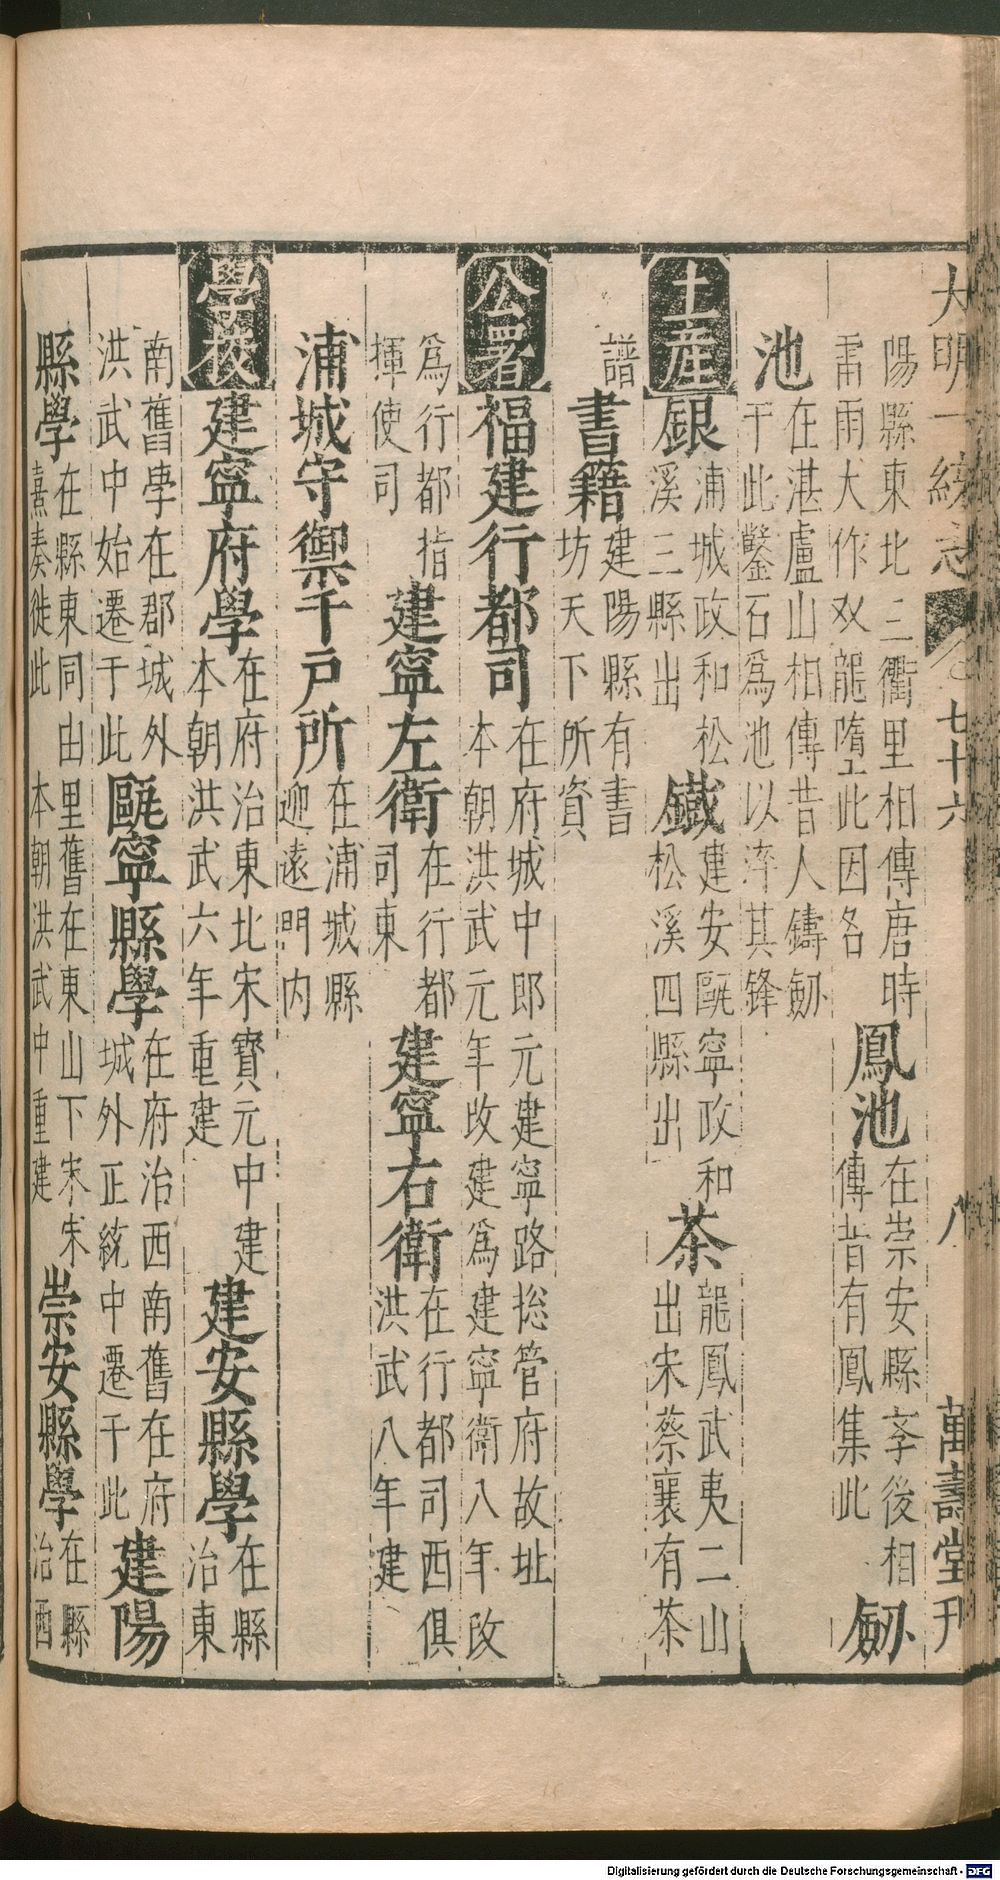 大明一統志 卷七十六 八 萬壽堂刊
陽縣東北三衢里相傳唐時
雷雨大作双龍墮此因名
鳳池
在崇安縣李後相
傳昔有鳳集此
劔
池
在湛盧山相傳昔人鑄劔
于此鑿石爲池以淬其鋒
土産
銀
浦城政和松
溪三縣出
鐵
建安甌寧政和
松溪四縣出
茶
龍鳳武夷二山
出宋蔡襄有茶
譜
書籍
建陽縣有書
坊天下所資
公署
福建行都司
在府城中郎元建寧路捴管府故址
本朝洪武元年改建爲建寧衛八年改
爲行都指
揮使司
建寧左衛
在行都
司東
建寧右衛
在行都司西俱
洪武八年建
浦城守禦千戸所
在浦城縣
迎遠門内
學校
建寧府學
在府治東北宋寳元中建
本朝洪武六年重建
建安縣學
在縣
治東
南舊學在郡城外
洪武中始遷于此
甌寧縣學
在府治西南舊在府
城外正統中遷于此
建陽
縣學
在縣東同由里舊在東山下宋朱
熹奏徙此 本朝洪武中重建
崇安縣學
在縣
治西
Digitalisierung gefördert durch die Deutsche Forschungsgemeinschaft - DFG